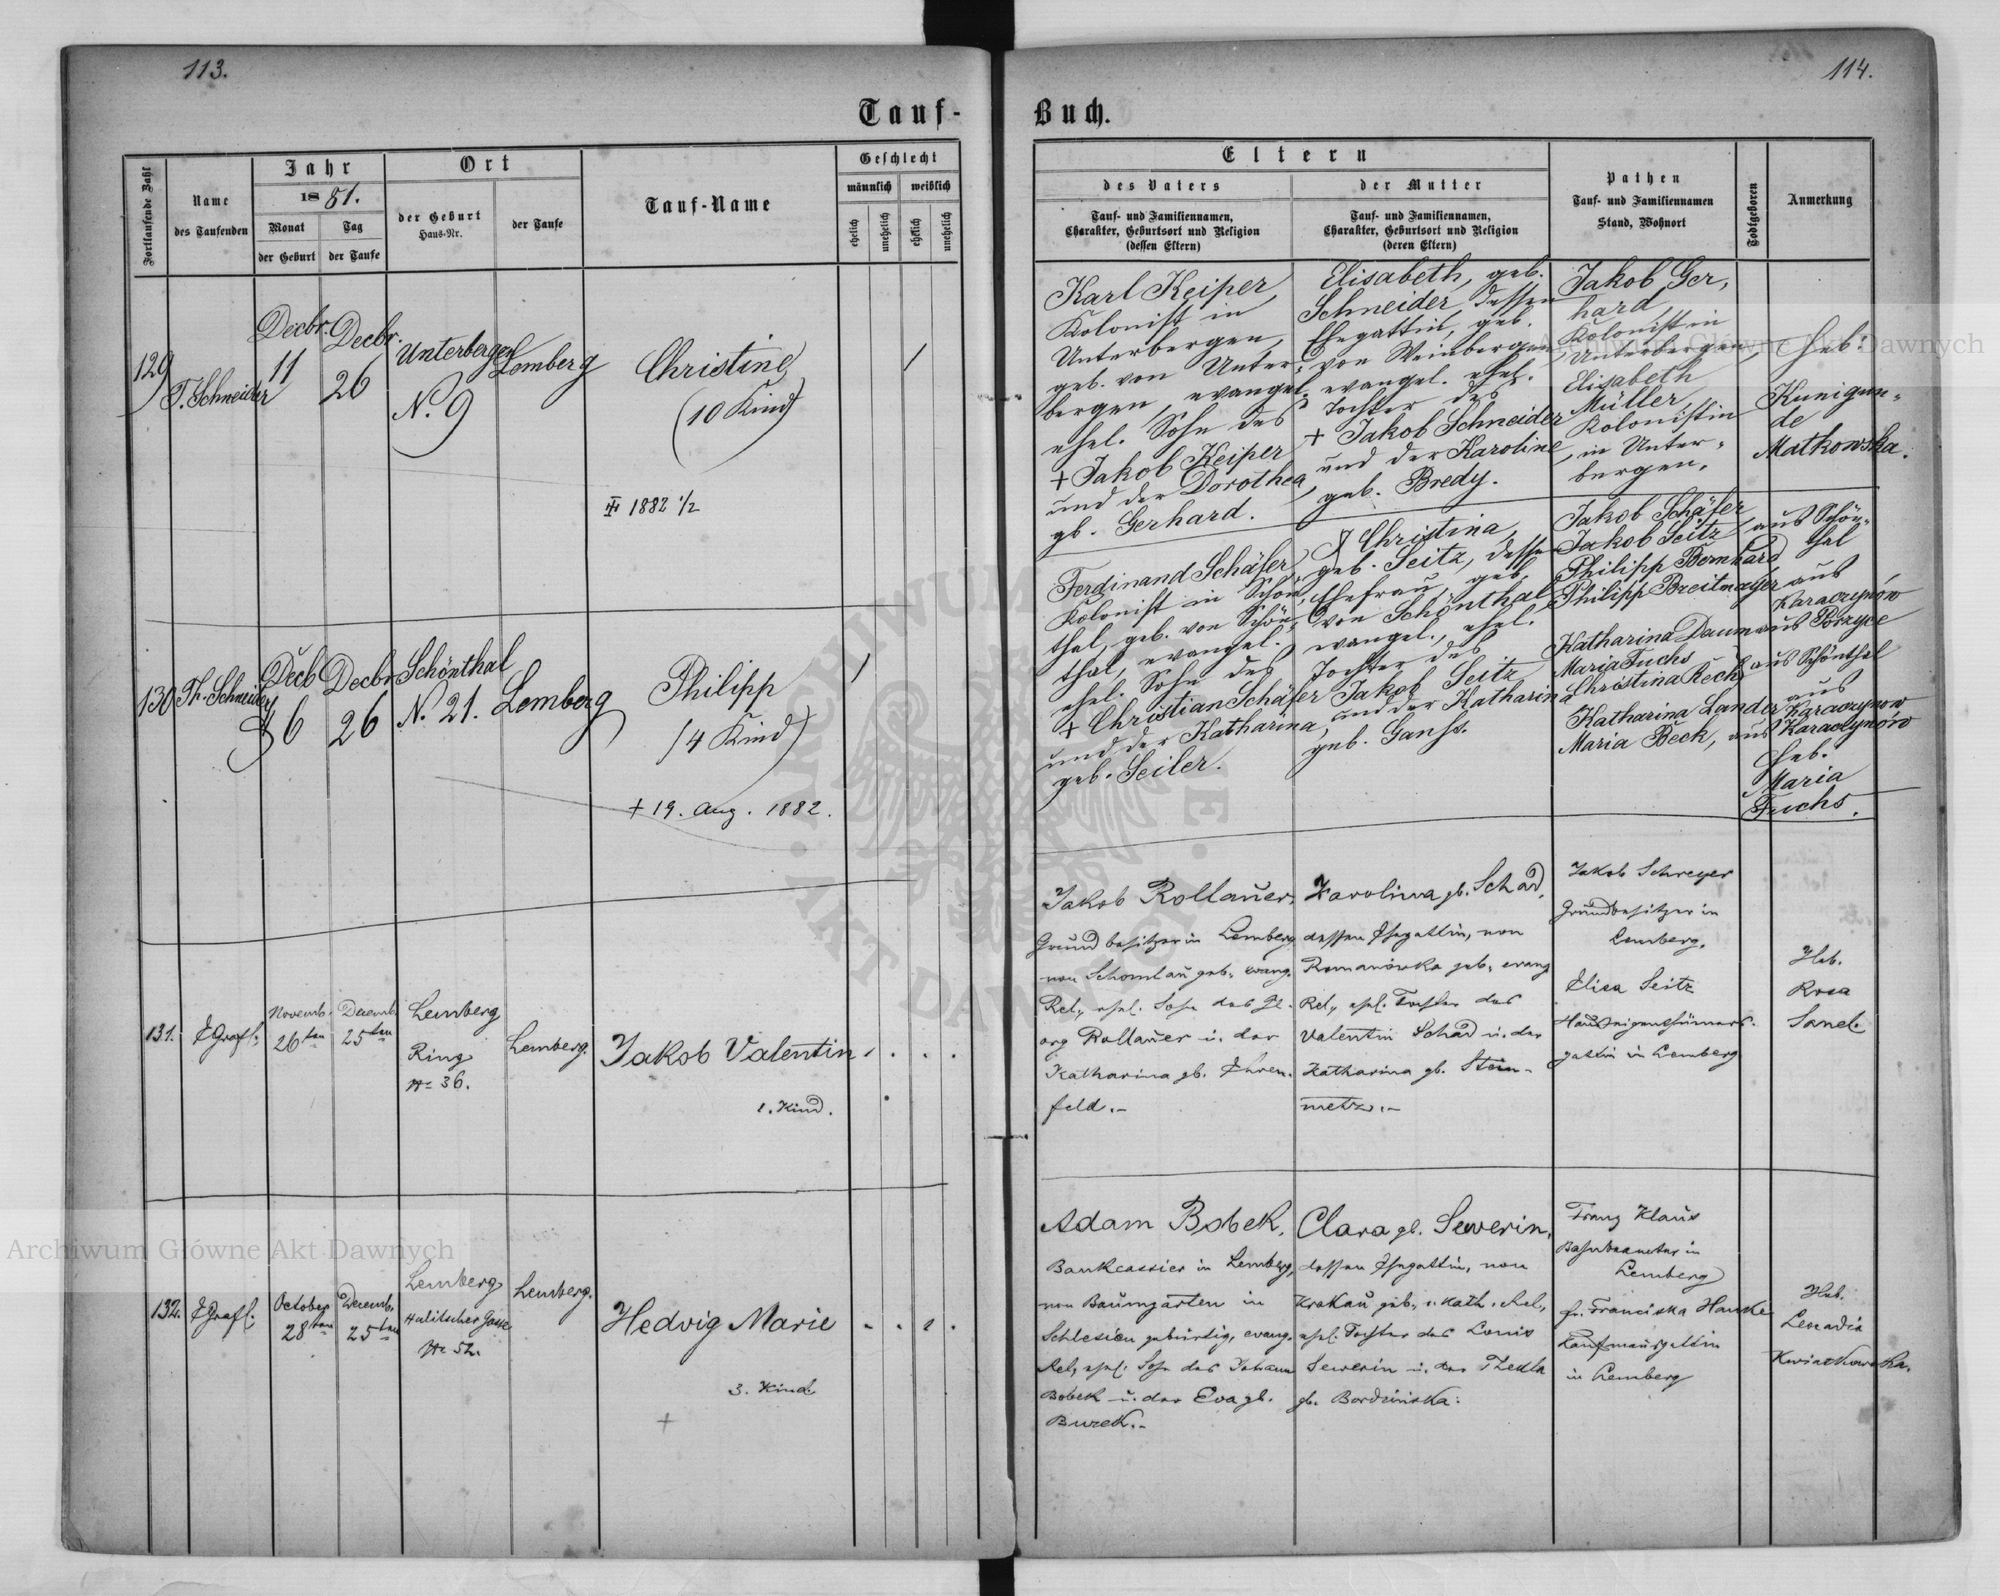 113.
114.
Tauf-
Buch.
Fortlaufende Zahl
Name
des Taufenden
Jahr
1881.
Monat
der Geburt
Tag
der Taufe
Ort
der Geburt
Haus-Nr.
der Taufe
Tauf-Name
Geschlecht
männlich
weiblich
ehelich
unehelich
ehelich
unehelich
Eltern
des Vaters
Tauf- und Familiennamen,
Charakter, Geburtsort und Religion
(dessen Eltern)
der Mutter
Tauf- und Familiennamen,
Charakter, Geburtsort und Religion
(deren Eltern)
Pathen
Tauf- und Familiennamen
Stand, Wohnort
Todtgeboren
Anmerkung
129
T. Schneider
Decbr.
11
Decbr.
26
Unterbergen
N. 9
Lemberg
Christine
(10 Kind)
1882 1/2
/
Karl Keiper,
Kolonist in
Unterbergen,
geb. von Unter-
bergen, evangel.
ehel. Sohn des
+ Jakob Keiper
und der Dorothea,
gb. Gerhard.
Elisabeth, geb.
Schneider dessen
Ehegattin, geb.
von Weinbergen
evangel. ehel.
Tochter des
+ Jakob Schneider
und der Karoline,
geb. Bredy.
Jakob Ger-
hard
Kolonist in
Unterbergen,
Elisabeth
Müller,
Kolonistin
in Unter-
bergen.
Heb:
Kunigun-
de
Matkowska.
130
Th. Schneider
Decb
6
Decbr.
26
Schönthal
N. 21.
Lemberg
Philipp
(4 Kind)
+ 19. Aug. 1882.
/
Ferdinand Schäfer,
Kolonist in Schön-
thal, geb. von Schön-
thal, evangel.
ehel. Sohn des
+ Christian Schäfer
und der Katharina,
geb. Seiler.
Christina,
geb. Seitz, dessen
Ehefrau, geb.
von Schönthal e-
vangel., ehel.
Tochter des
Jakob Seitz
und der Katharina
geb. Ganss.
Jakob Schäfer
Jakob Seitz, aus Schön-
thal
Philipp Bernhard
Philipp Breitmayer aus
Karaczynów
Katharina Daum aus Porzyce
Maria Fuchs
Christina Rech, aus Schönthal
Katharina Lander, aus
Karaczynow
Maria Beck, aus Karaczynów
Heb.
Maria
Fuchs.
131.
EGrafl.
Novemb.
26ten
Decemb.
25ten
Lemberg
Ring
No 36.
Lemberg.
Jakob Valentin
1. Kind.
1 . . .
Jakob Rollauer,
Grundbesitzer in Lemberg
von Schomlau geb., evang.
Rel., ehel. Sohn des Ge-
org Rollauer u. der
Katharina gb. Ehren-
feld.-
Karolina gb. Schad,
dessen Ehegattin, von
Romanówka geb., evang
Rel., ehel. Tochter des
Valentin Schad u. der
Katharina gb. Stein-
metz.-
Jakob Schreyer
Grundbesitzer in
Lemberg.
Elisa Seitz
Hauseigenthümers-
gattin in Lemberg
Heb.
Rosa
Sanel.
132.
EGrafl.
October
28ten
Decemb.
25ten
Lemberg
Halitscher Gasse
No 52.
Lemberg.
Hedvig Marie
3. Kind.
+
. . 1 .
Adam Bobek,
Bankcassier in Lemberg,
von Baumgarten in
Schlesien gebürtig, evang.
Rel., ehel. Sohn des Johann
Bobek u. der Eva gb.
Buzek.-
Clara gb. Sewerin,
dessen Ehegattin, von
Krakau geb., r. kath. Rel.,
ehel. Tochter des Louis
Sewerin u. der Thekla
gb. Bordzinska.
Franz Klaus
Bahnbeamter in
Lemberg
fr. Franciska Hanke
Kaufmansgattin
in Lemberg
Heb.
Leocadia
Kwiatkowska.
Archiwum Główne Akt Dawnych
Archiwum Główne Akt Dawnych